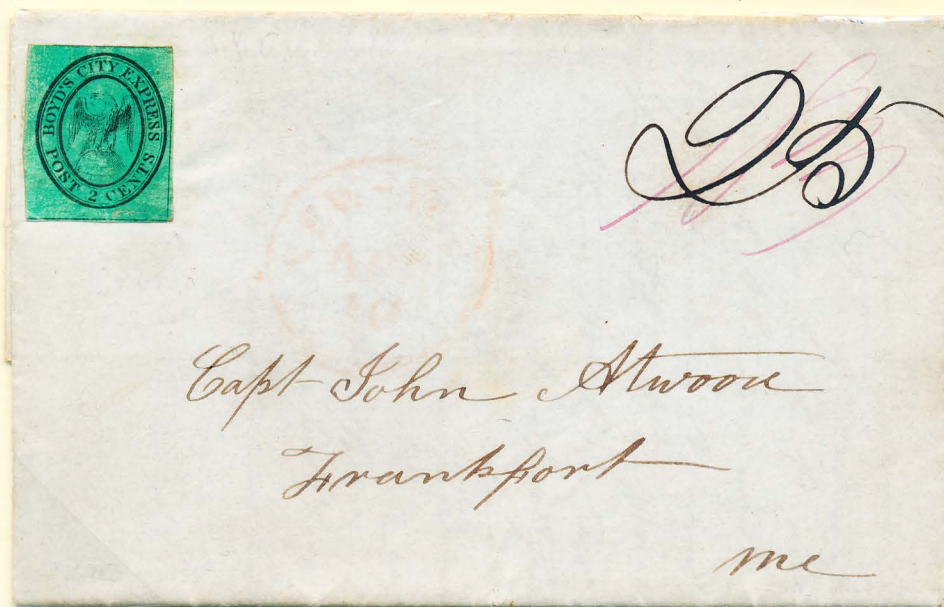 BOYD'S CITY EXPRESS
POST 2 CENTS
Capt John Atwood
Frankfort
Me